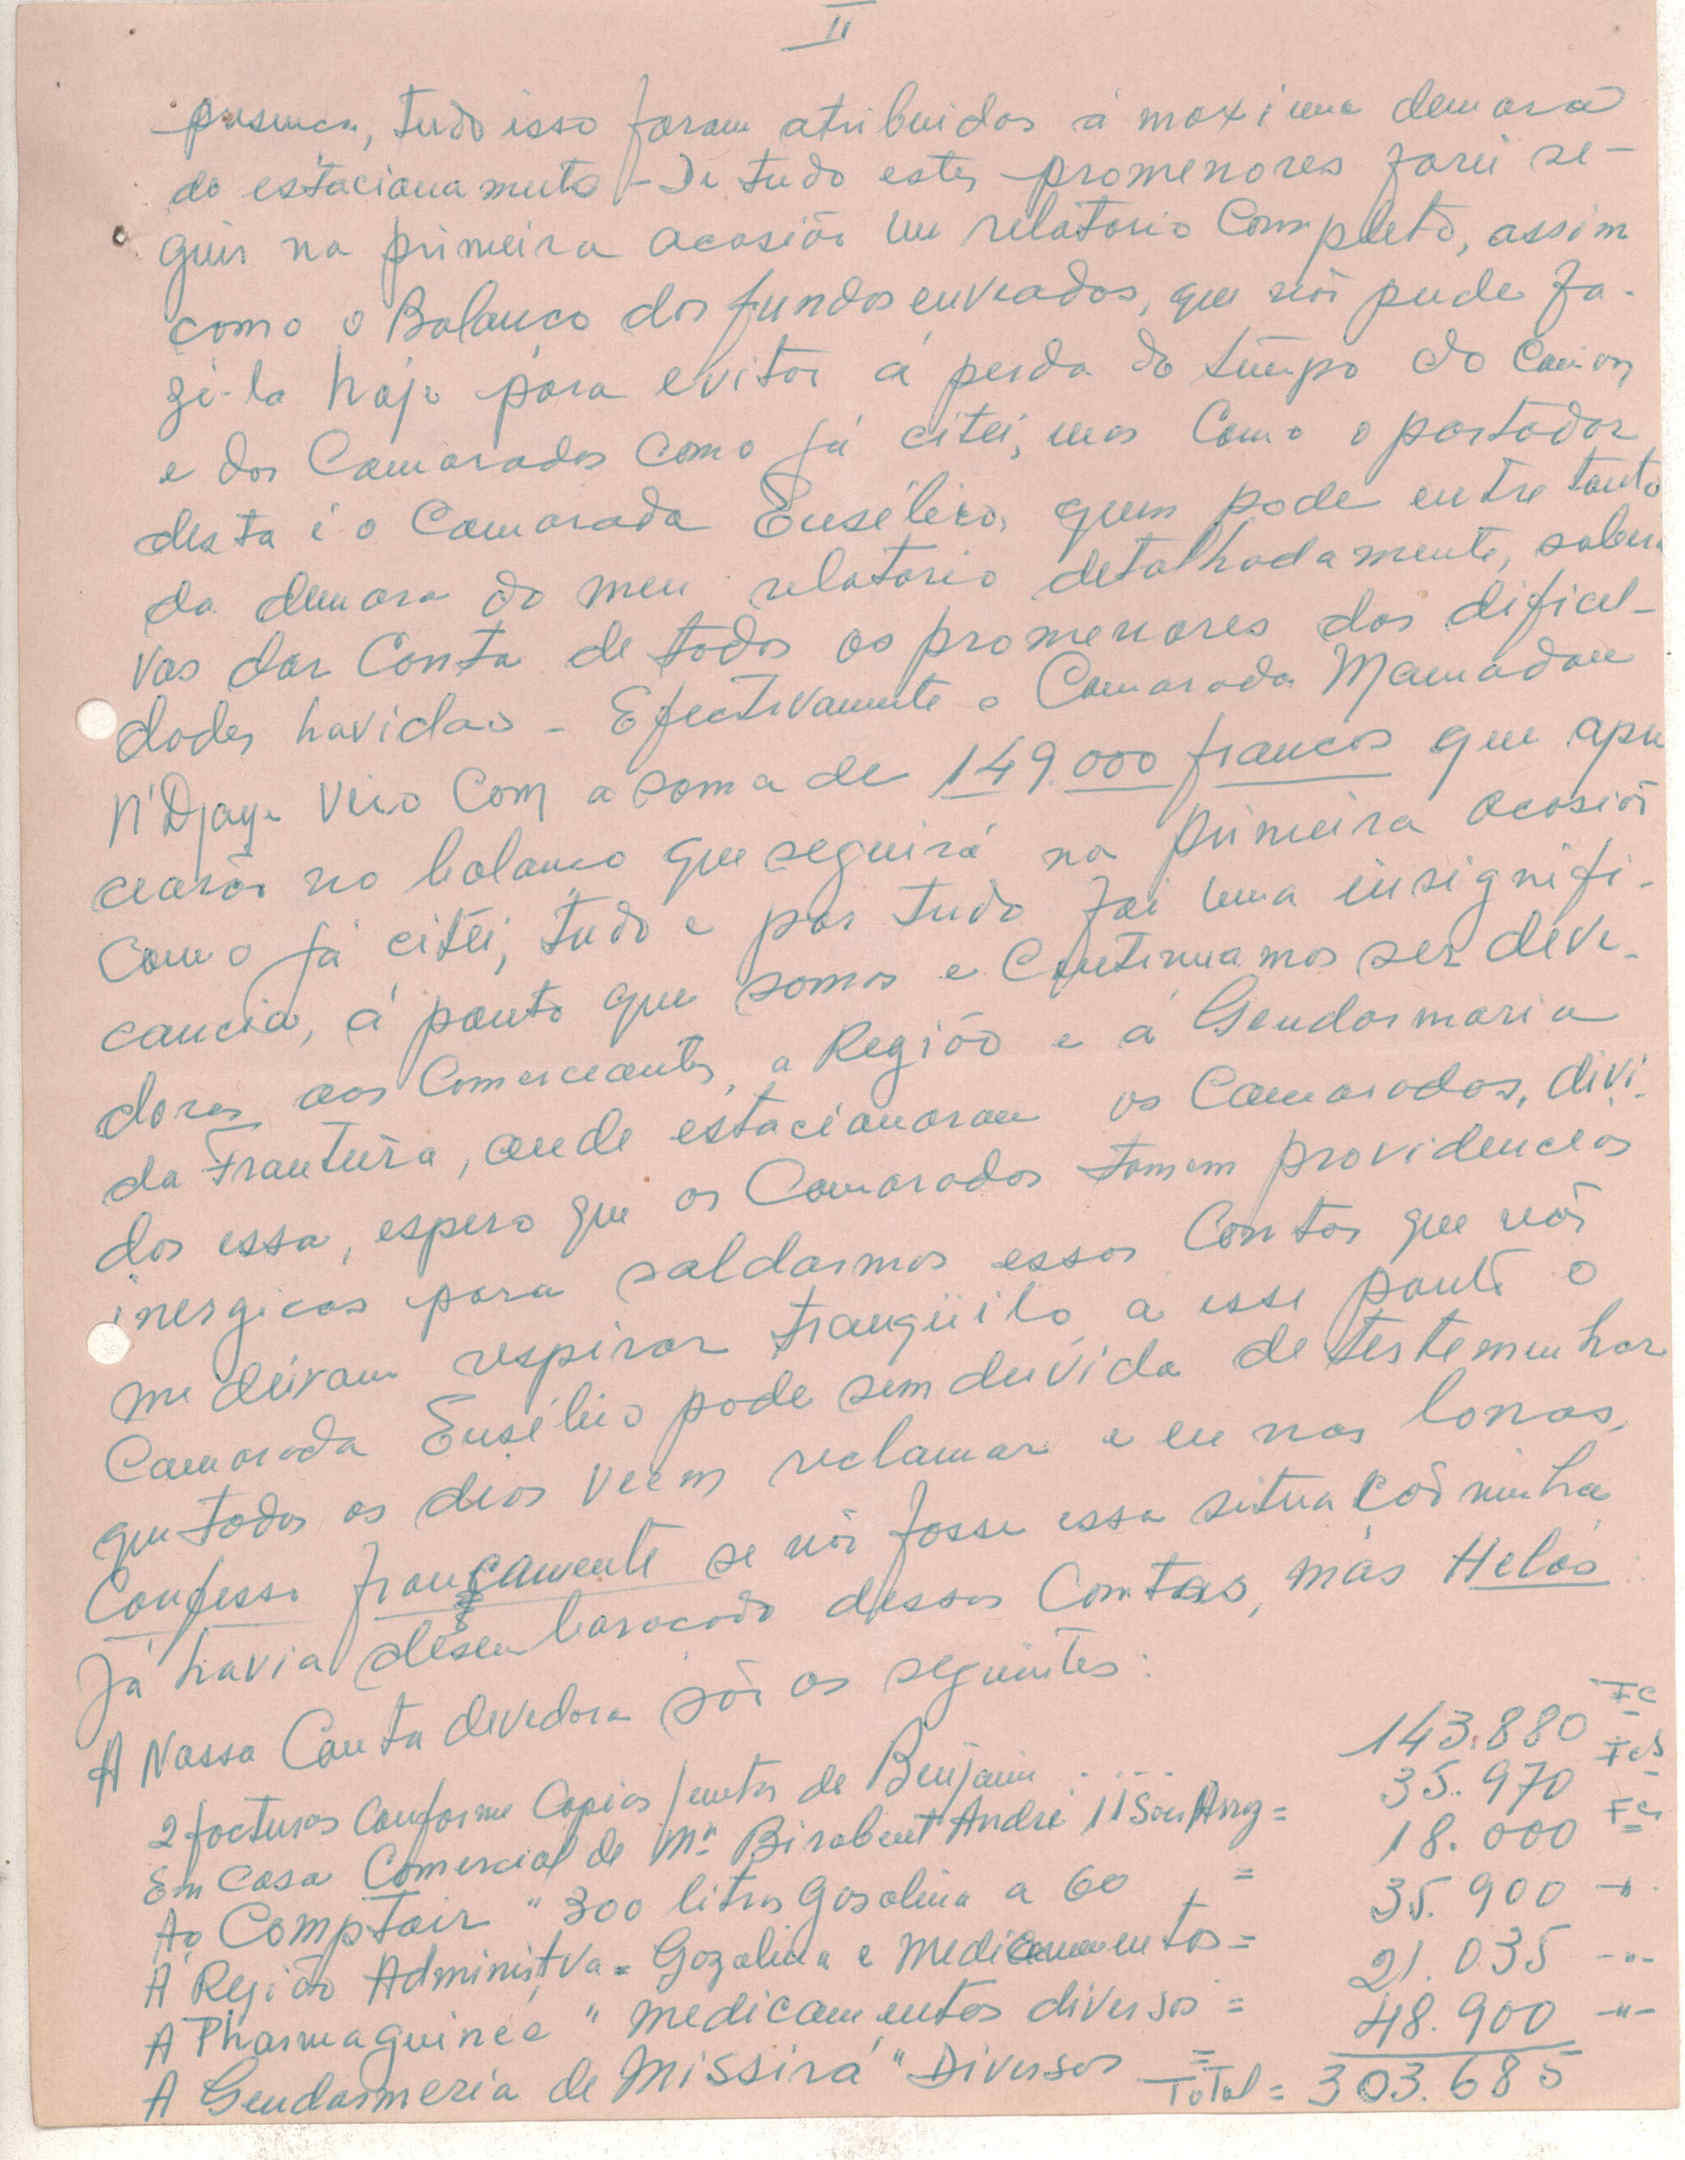 II
presença, tudo isso foram atribuidos á maxima demora
do estacionamento - De tudo estes promenores farei se-
guir na primeira ocasião um relatorio Completo, assim
como o Balanço dos fundos enveados, que não pude fa-
zê-la hoje para evitar á perda do tempo do Camion
e dos Camarados como já citei, mas Como o portador
desta é o Camarada Eusélio, quem pode entretanto
da demora do meu relatorio detalhadamente, saberá
vos dar Conta de todos os promenores das dificul-
dades havidas - Efectivamente o Camarada Mamadou
N'Djaye veio Com a soma de 149.000 francos que apre
ciarão no balanço que seguirá na primeira ocasião
Como já citei, tudo e por tudo foi uma insignifi-
cancia, á ponto que somos e Continuamos ser deve-
dores aos Comerceantes, a Região e á Gendarmaria
da Fronteira, onde estacionaram os Camarados, divi-
das essa, espero que os Camarados tomem providencias
inergicas para saldarmos essas Contas que não
me deixam respirar tranqüilo, a esse ponto o
Camarada Eusélio pode sem duvida de testemunhar
que todos os dias veem reclamar e eu nas lonas,
Confesso francamente se não fosse essa situação minha
Já havia desembaraçado dessas Contas, mas Helás
A Nossa Conta devedora são os seguintes:
2 facturas Conforme Copias juntas de Benjamin . . . . 143.880 Fc
Em Casa Comercial de Mr Birabent André 11 Sou Arroz = 35.970 Fcs
Ao Comptoir " 300 litros Gasolina a 60 = 18.000 Fcs
Á Região Administva = Gozalina e Medicamentos = 35.900 -"-
A Pharmaguinée " medicamentos diversos = 21.035 -"-
A Gendarmeria de Missirá " Diversos = 48.900 -"-
Total = 303.685